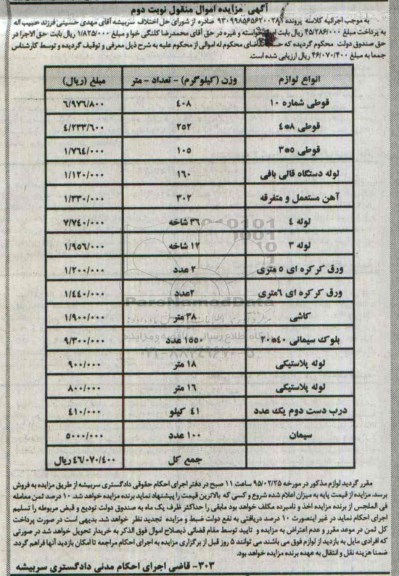 آگهی مزایده اموال منقول نوبت دوم
به موجب اجرائیه کلاسه پرونده ۹۳۰۹۹۸۵۶۵۶۲۰۰۲۸۰ صادره از شورای حل اختلاف سربیشه آقای مهدی حسینی فرزند حبیب اله
به پرداخت مبلغ ۴۵/۲۸۶/۰۰۰ ریال بابت اصل خواسته و غیره در حق آقای محمدرضا کلنگی خوا و مبلغ ۱/۸۲۵/۰۰۰ ریال بابت حق الاجرا در
حق صندوق دولت محکوم گردیده که حسب تقاضای محکوم له اموالی از محکوم علیه به شرح ذیل معرفی و توقیف گردیده و توسط کارشناس
جمعا به مبلغ ۴۶/۰۷۰/۴۰۰ ریال ارزیابی شده است.
انواع لوازم وزن (کیلوگرم) - تعداد - متر مبلغ (ریال)
قوطی شماره ۱۰ ۴۰۸ ۶/۹۷۶/۸۰۰
قوطی ۸*۴ ۲۵۲ ۴/۲۳۳/۶۰۰
قوطی ۵*۳ ۱۰۵ ۱/۷۶۴/۰۰۰
لوله دستگاه قالی بافی ۱۶۰ ۱/۱۲۰/۰۰۰
آهن مستعمل و متفرقه ۳۰۲ ۱/۳۳۰/۰۰۰
لوله ۴ ۳۶ شاخه ۷/۷۴۰/۰۰۰
لوله ۳ ۱۲ شاخه ۱/۹۵۶/۰۰۰
ورق کرکره ای ۵ متری ۲ عدد ۱/۲۰۰/۰۰۰
ورق کرکره ای ۶ متری ۲ عدد ۱/۴۴۰/۰۰۰
کاشی ۳۸ متر ۱/۹۰۰/۰۰۰
بلوک سیمانی ۴۰*۲۰ ۱۵۵۰ عدد ۹/۳۰۰/۰۰۰
لوله پلاستیکی ۱۸ متر ۹۰۰/۰۰۰
لوله پلاستیکی ۱۶ متر ۸۰۰/۰۰۰
درب دست دوم یک عدد ۴۱ کیلو ۴۱۰/۰۰۰
سیمان ۱۰۰ عدد ۵۰۰۰/۰۰۰
جمع کل ۴۶/۰۷۰/۴۰۰ ریال
مقرر گردید لوازم مذکور در مورخه ۹۵/۰۲/۲۵ ساعت ۱۱ صبح در دفتر اجرای احکام حقوقی دادگستری سربیشه از طریق مزایده به فروش
برسد. مزایده از قیمت پایه به میزان اعلام شده شروع و کسی که بالاترین قیمت را پیشنهاد نماید برنده مزایده خواهد شد. ۱۰ درصد ثمن معامله
فی المجلس از برنده مزایده اخذ و نامبرده مکلف خواهد بود مابقی را حداکثر ظرف یک ماه به صندوق دولت تودیع و قبض مربوطه را تسلیم
اجرای احکام نماید در غیر اینصورت ۱۰ درصد دریافتی به نفع دولت ضبط و مزایده تجدید نظر خواهد شد. بدیهی است در صورت پرداخت
کل ثمن در موعد مقرر و عدم اعتراض به مزایده و تایید توسط مقام قضائی ذیصلاح اموال فوق الذکر به خریدار تحویل خواهد شد در صورتی
که افرادی مایل به بازدید از لوازم فوق می باشند می توانند ۵ روز قبل از برگزاری مزایده به اجرای احکام مراجعه تا امکان بازدید آنها فراهم گردد
ضمنا هزینه نقل و انتقال به عهده برنده مزایده خواهد بود.
۳۰۳- قاضی اجرای احکام مدنی دادگستری سربیشه